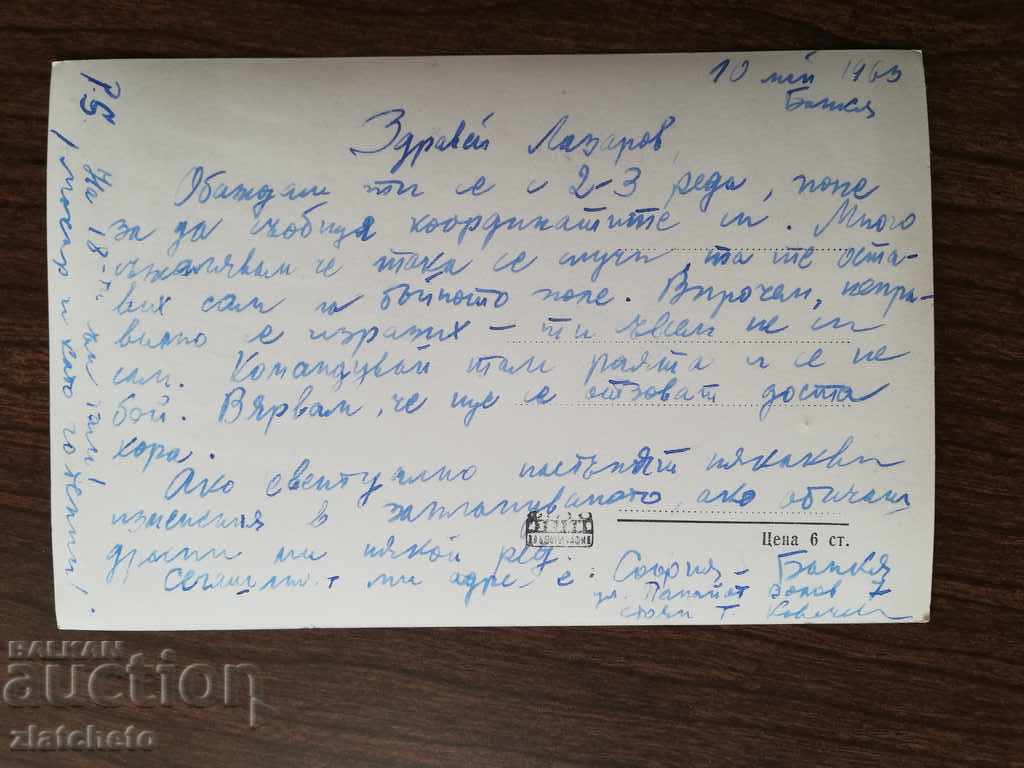 10 май 1963
Банкя
Здравей Лазаров,
Обаждам ти се с 2-3 реда, поне
за да съобщя координатите си. Много
съжалявам че така се случи, та те оста-
вих сам на бойното поле. Впрочем, непра-
вилно се изразих - ти съвсем не си
сам. Командувай там раята и се не
бой. Вярвам, че ще се отзоват доста
хора.
Ако евентуално настъпят някакви
изменения в заплануваното, ако обичаш
драсни ми някой ред.
Сегашният ми адрес е: София - Банкя
ул. Панайот 7
Стоян Т.
P.S. На 18-ти съм там!
и като
Цена 6 ст.
BALKAN
auction
zlatcheto